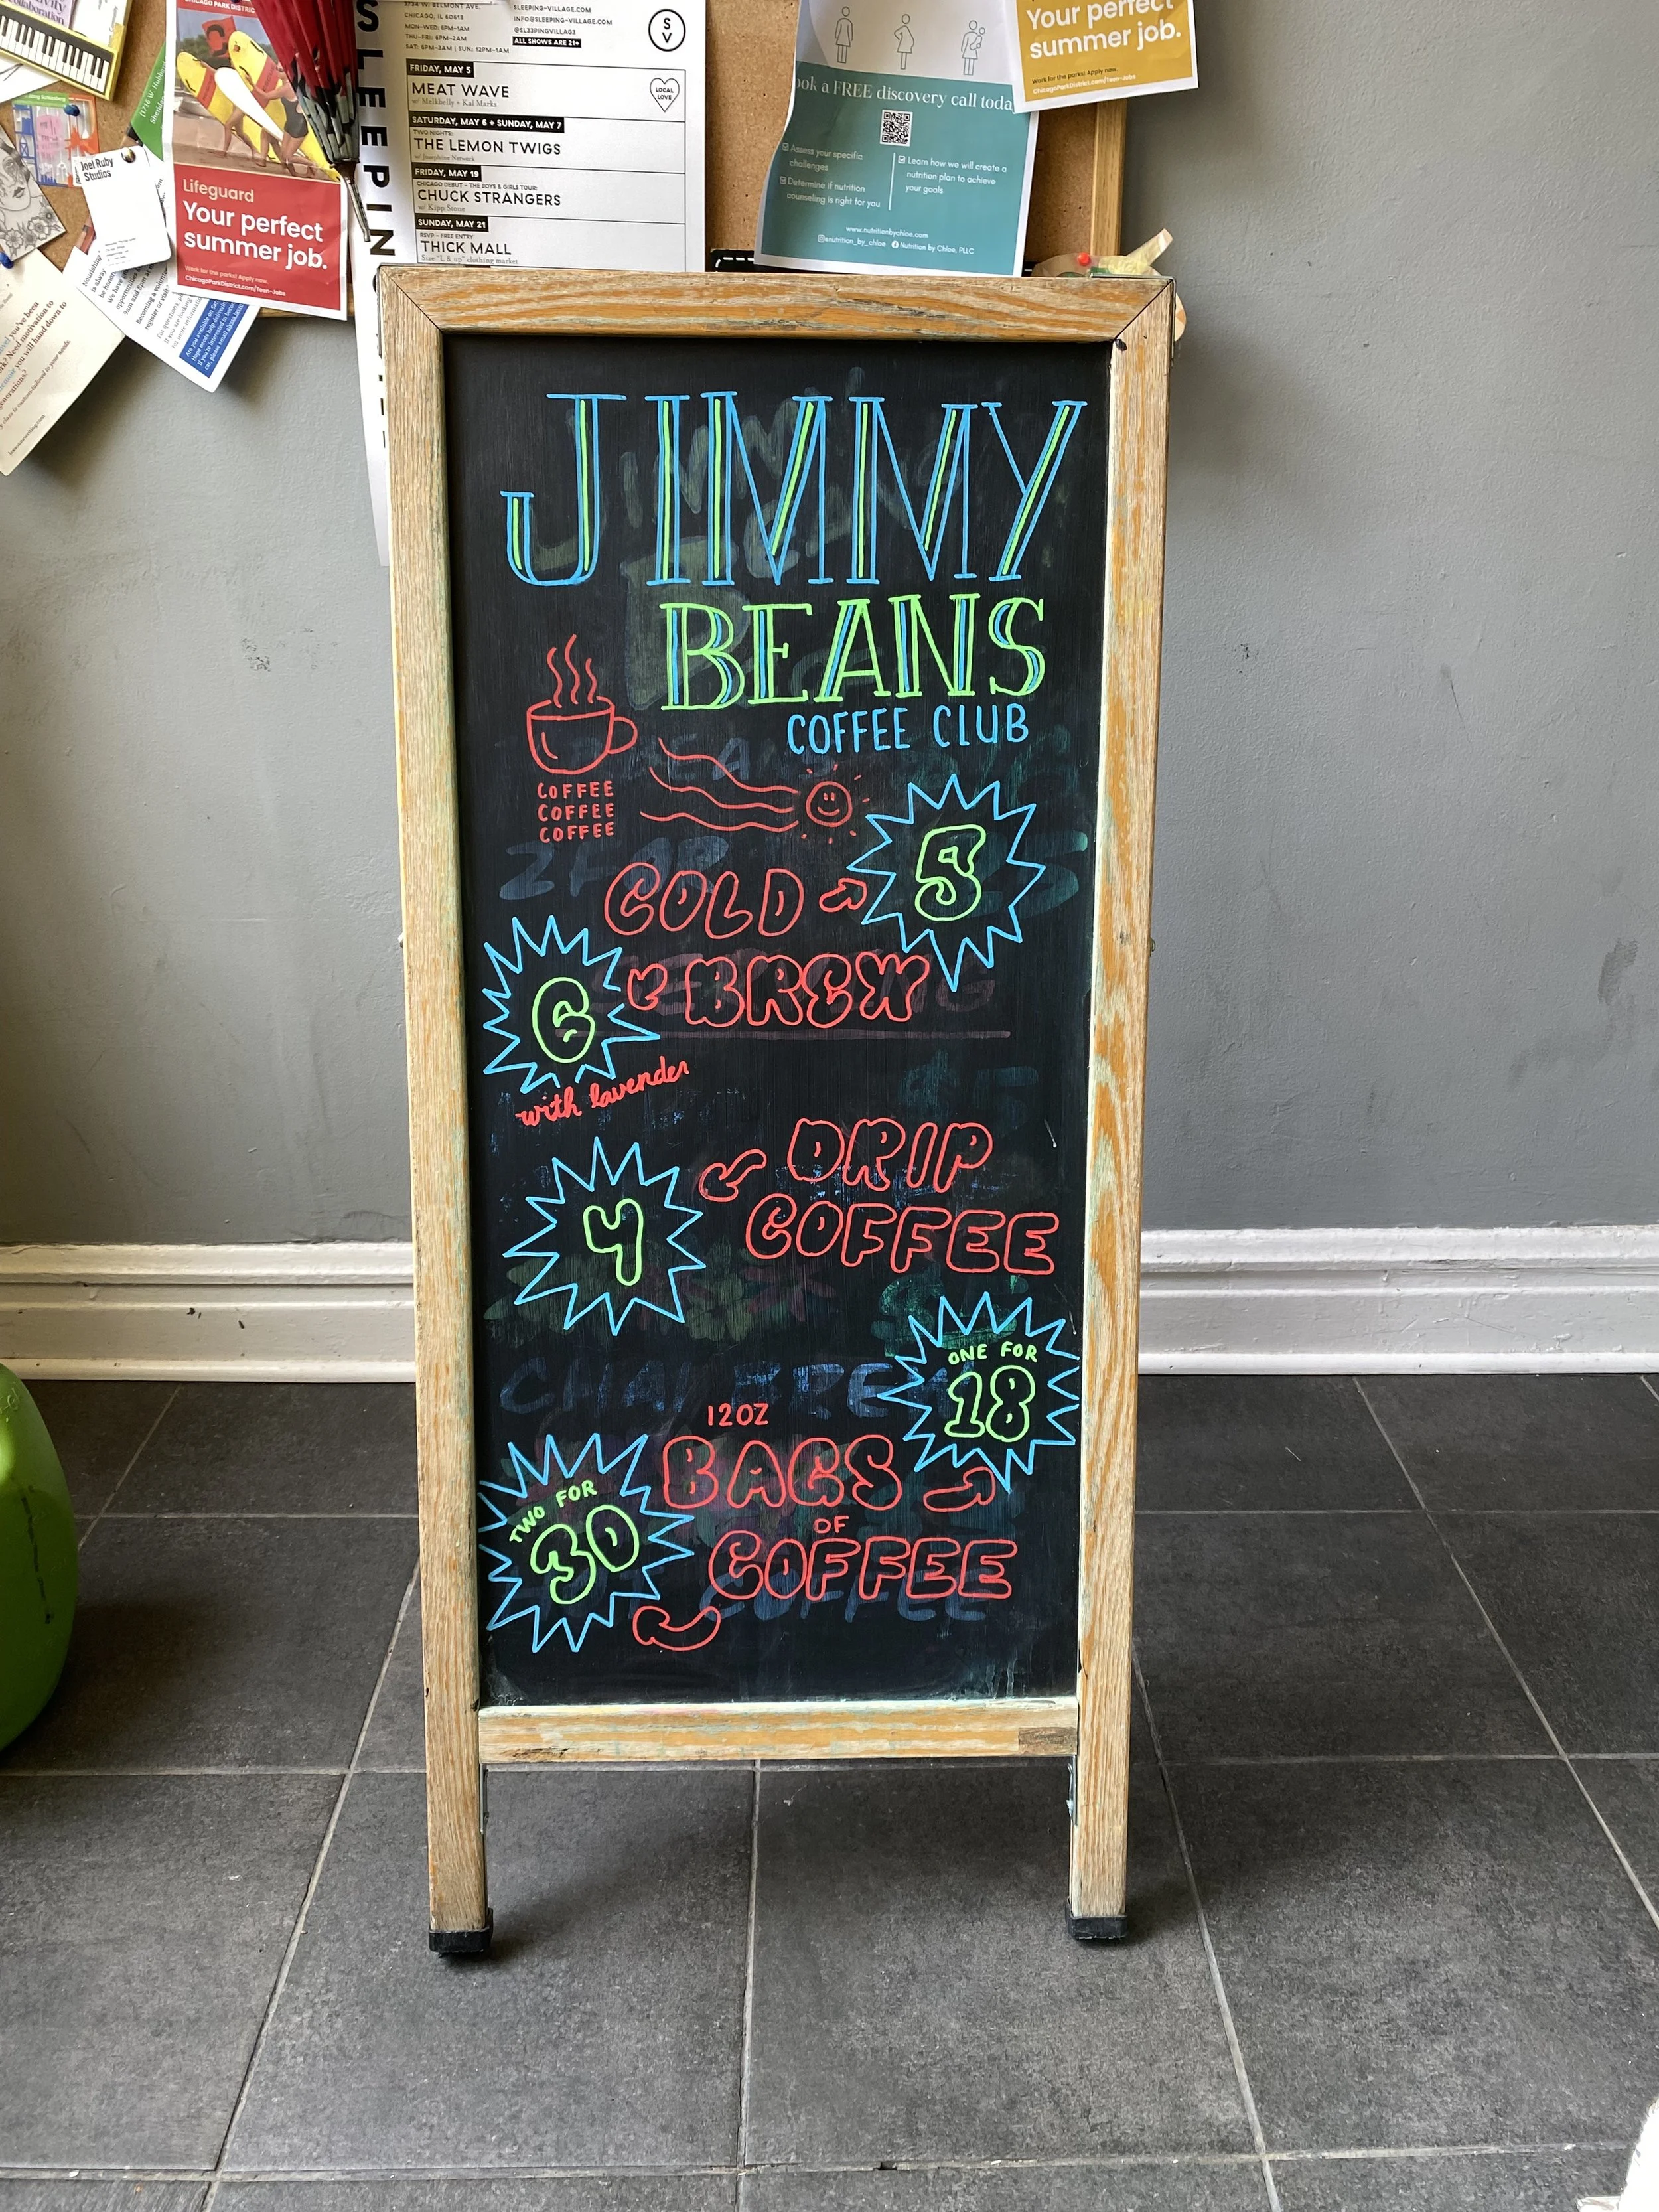 CHICAGO PARK DISTRICT
Lifeguard
Your perfect
summer job.
Work for the parks! Apply now.
ChicagoParkDistrict.com/Teen-Jobs
Joel Ruby
Studios
SLEEPIN
CHICAGO, IL 60618
MON-WED: 6PM-1AM
THU-FRI: 6PM-2AM
SAT: 6PM-3AM | SUN: 12PM-1AM
SLEEPING-VILLAGE.COM
INFO@SLEEPING-VILLAGE.COM
@SL33PINGVILLAG3
ALL SHOWS ARE 21+
S
V
FRIDAY, MAY 5
MEAT WAVE
w/ Melkbelly + Kal Marks
LOCAL
LOVE
SATURDAY, MAY 6 + SUNDAY, MAY 7
TWO NIGHTS:
THE LEMON TWIGS
w/ Josephine Network
FRIDAY, MAY 19
CHICAGO DEBUT - THE BOYS & GIRLS TOUR:
CHUCK STRANGERS
w/ Kipp Stone
SUNDAY, MAY 21
RSVP - FREE ENTRY
THICK MALL
Size "L & up" clothing market
ook a FREE discovery call toda
Assess your specific
challenges
Determine if nutrition
counseling is right for you
Learn how we will create a
nutrition plan to achieve
your goals
www.nutritionbychloe.com
@nutrition_by_chloe Nutrition by Chloe, PLLC
Your perfect
summer job.
Work for the parks! Apply now.
ChicagoParkDistrict.com/Teen-Jobs
JIMMY
BEANS
COFFEE CLUB
COFFEE
COFFEE
COFFEE
COLD 5
6 BREW
with lavender
DRIP
4 COFFEE
ONE FOR
18
12OZ
BAGS
TWO FOR
30
OF
COFFEE